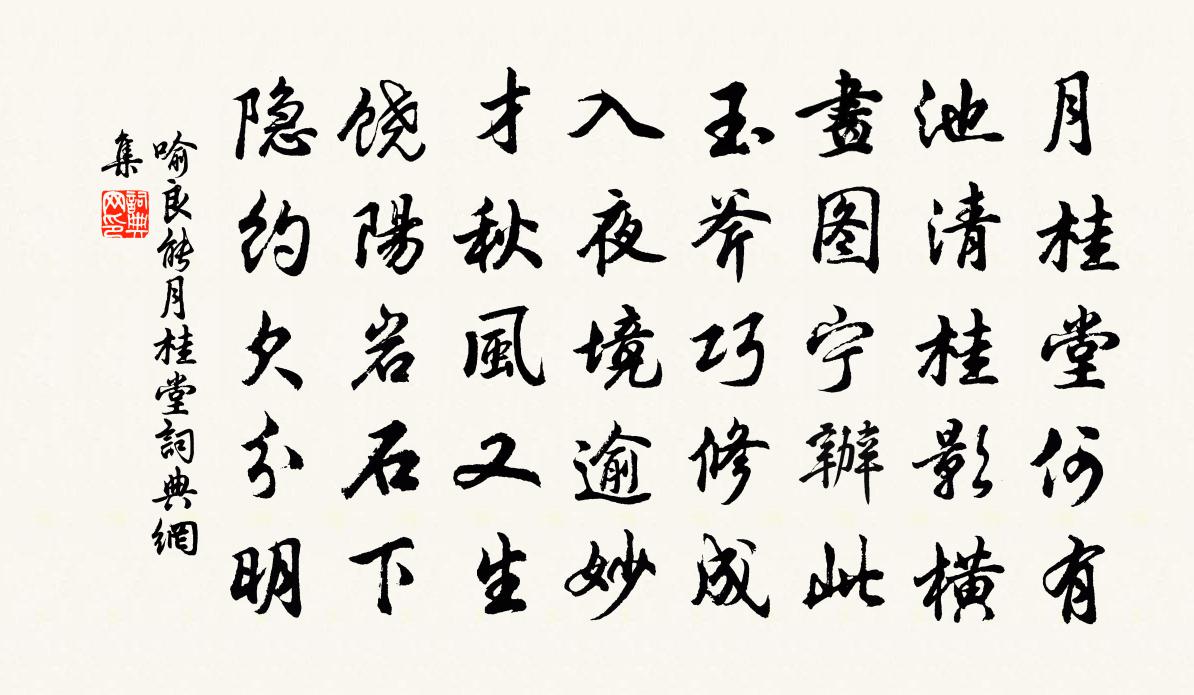 月桂堂何有
池清桂影橫
畫图宁辦此
玉斧巧修成
入夜境逾妙
才秋風又生
饶陽岩石下
隐約欠分明
喻良能月桂堂詞典網
集
詞典网印